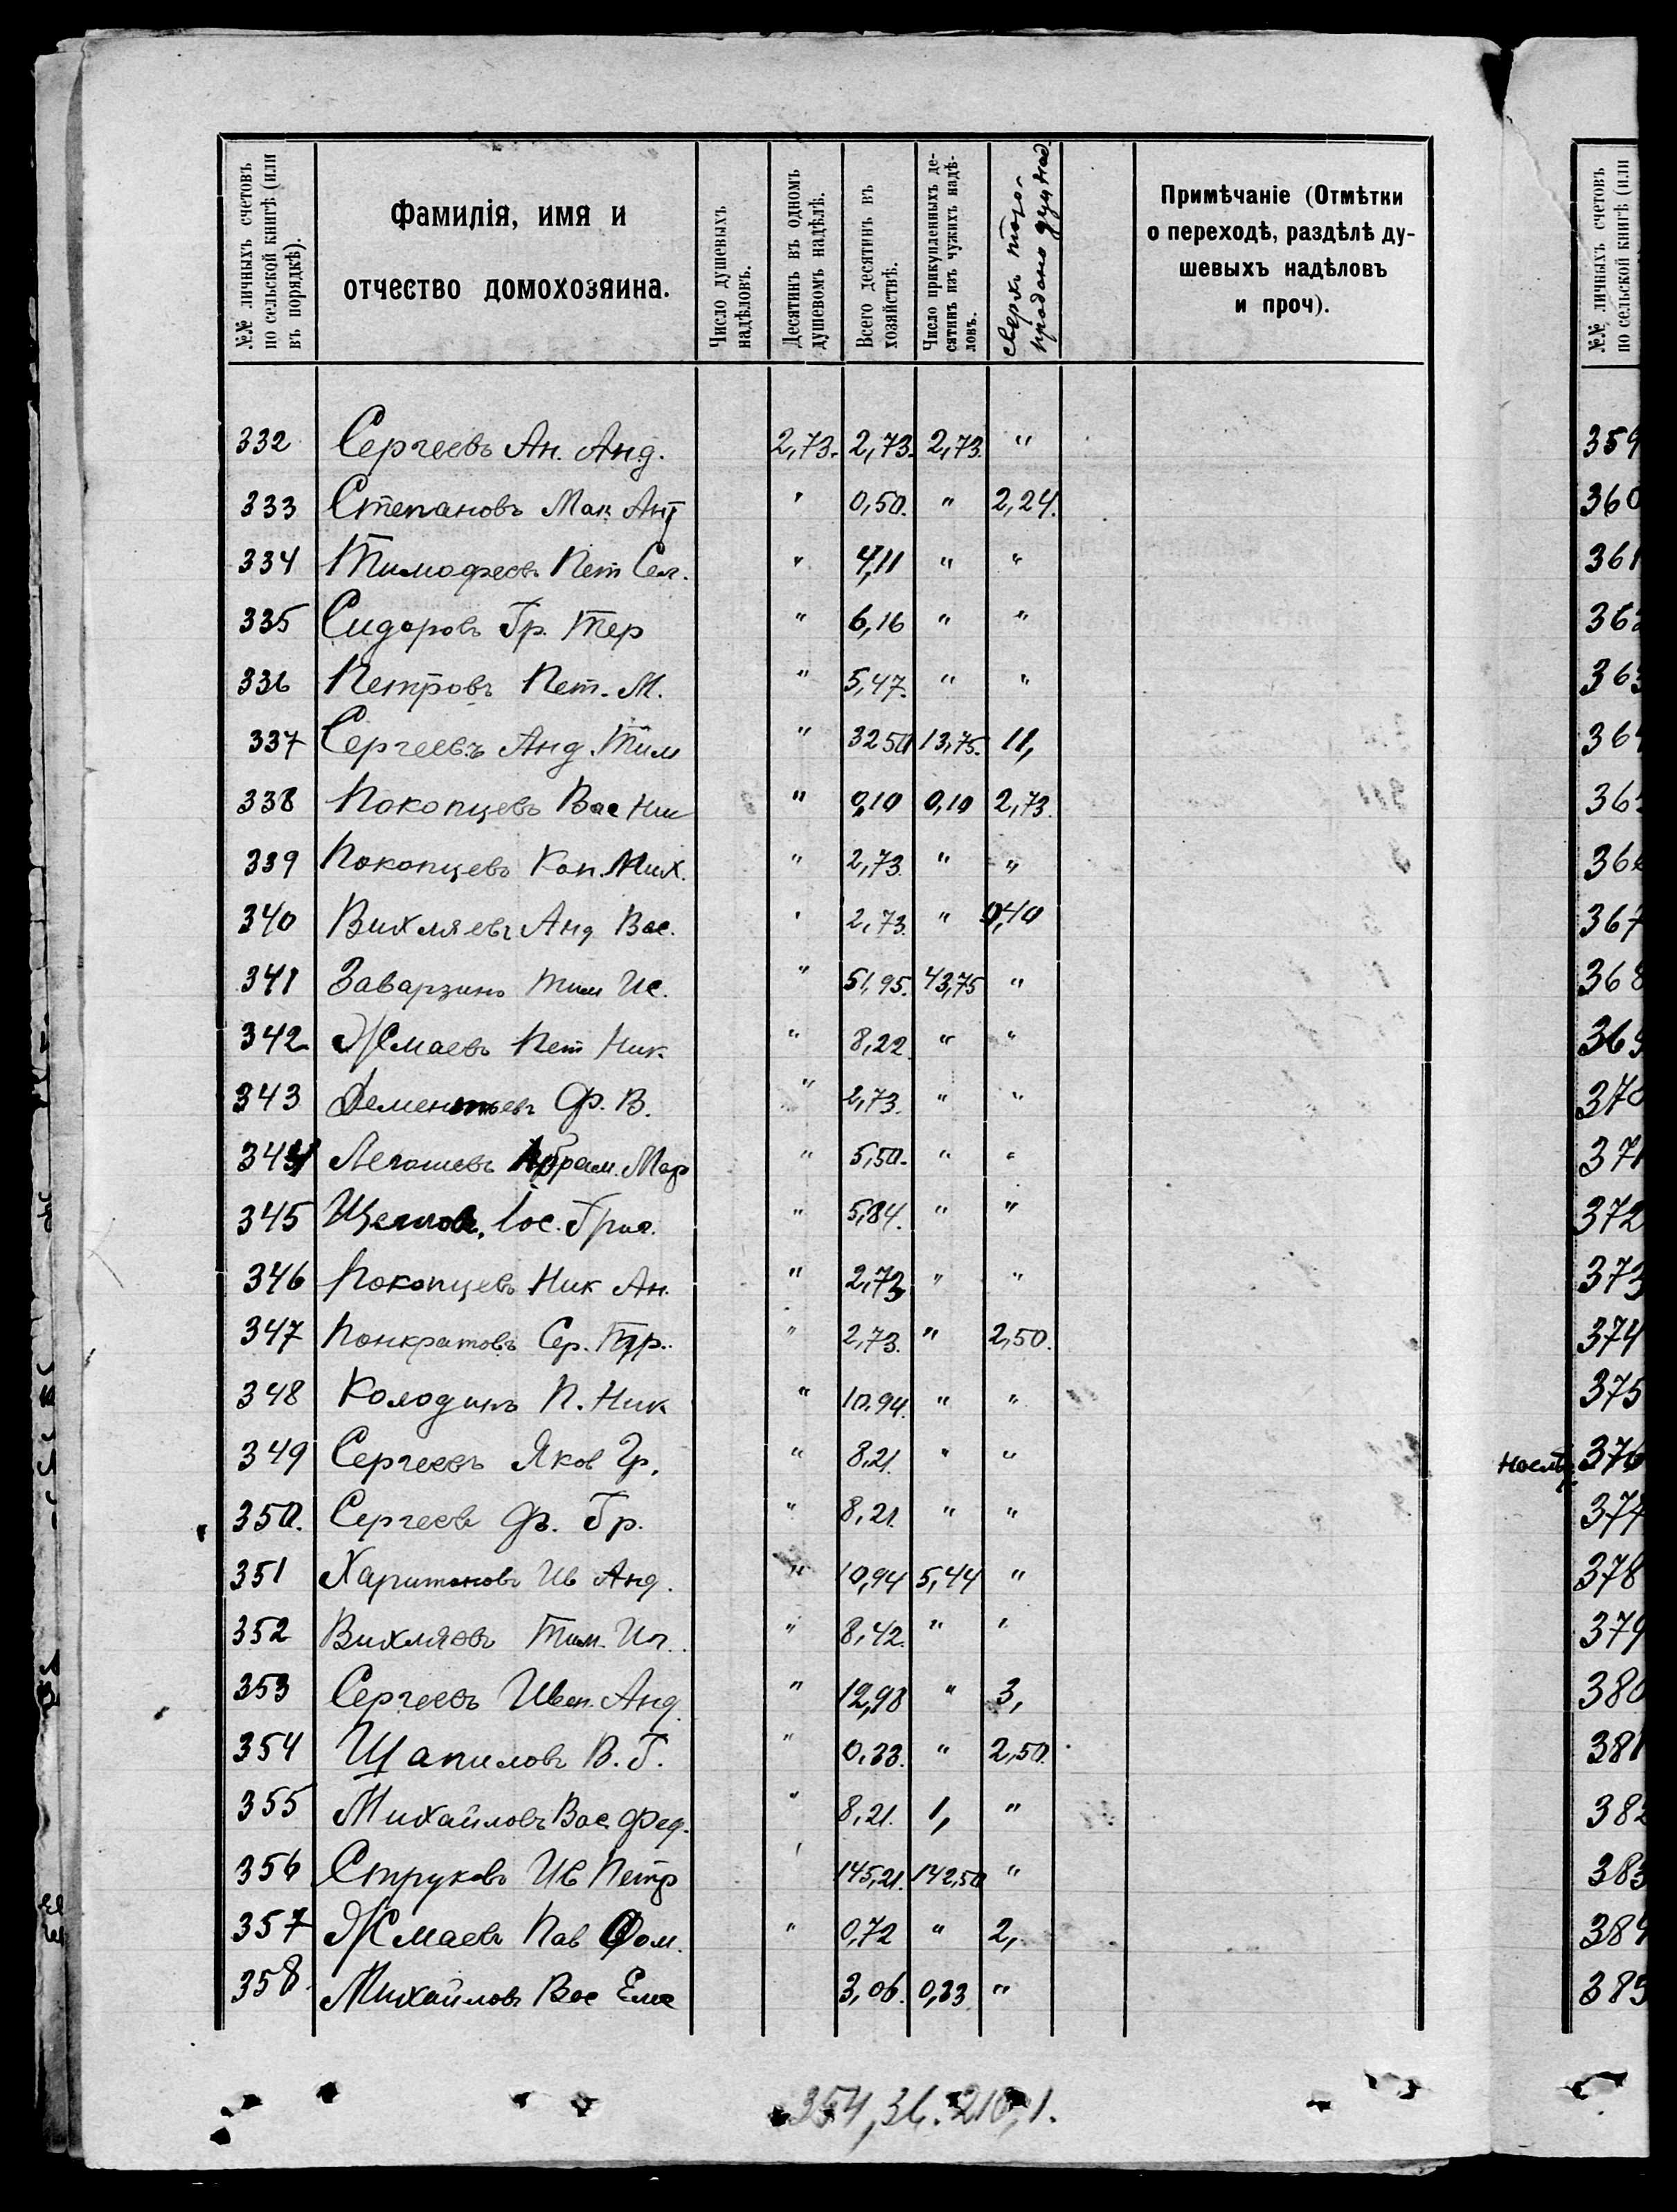 №№ личныхъ счетовъ по сельской книгѣ (или въ порядкѣ).
Фамилія, имя и отчество домохозяина.
Число душевыхъ надѣловъ.
Десятинъ въ одномъ душевомъ надѣлѣ.
Всего десятинъ въ хозяйствѣ.
Число прикупленныхъ десятинъ изъ чужихъ надѣловъ.
сверхъ того продано душ над.
Примѣчаніе (Отмѣтки о переходѣ, раздѣлѣ душевыхъ надѣловъ и проч).
№№ личныхъ счетовъ по сельской книгѣ (или
332 Сергеевъ Ан. Анд. 2,73. 2,73. 2,73. "
333 Степановъ Мак Ант " 0,50. " 2,24.
334 Тимофеевъ Пет Сем. " 4,11 " "
335 Сидоровъ Гр. Тер " 6,16 " "
336 Петровъ Пет. М. " 5,47. " "
337 Сергеевъ Анд. Тим " 32 50 13,75. 11,
338 Покопцевъ Вас Ник " 0,10 0,10 2,73.
339 Покопцевъ Кон. Мих. " 2,73. " "
340 Вихляевъ Анд Вас. " 2,73. " 0,40
341 Заварзинъ Тим Ис. " 51,95. 43,75 "
342 Жмаевъ Пет Ник " 8,22 " "
343 Дементьевъ Ф. В. " 2,73. " "
344 Легошевъ Абрам. Мар " 5,50. " "
345 Іос. Григ. " 5,84. " "
346 Покопцевъ Ник Ан. " 2,73 " "
347 Понкратовъ Сер. " 2,73. " 2,50.
348 Колодинъ П. Ник " 10,94. " "
349 Сергеевъ Яков Гр. " 8,21. " "
350. Сергеевъ Ф. Гр. " 8,21. " "
351 Харитоновъ Ив Анд. " 10,94 5,44 "
352 Вихляевъ Тим. Иг. " 8,42. " "
353 Сергеевъ Иван. Анд. " 12,98 " 3,
354 Щапиловъ В. Г. " 0,23. " 2,50.
355 Михайловъ Вас Фед. " 8,21. 1, "
356 Струковъ Ив Петр " 145,21. 142,50 "
357 Жмаевъ Пав Фом. " 0,72 " 2,
358. Михайловъ Вас Еме 3,06. 0,33 "
354,36. 210,1.
359
360
361
362
363
364
365
366
367
368
369
370
371
372
373
374
375
376
377
378
379
380
381
382
383
384
385